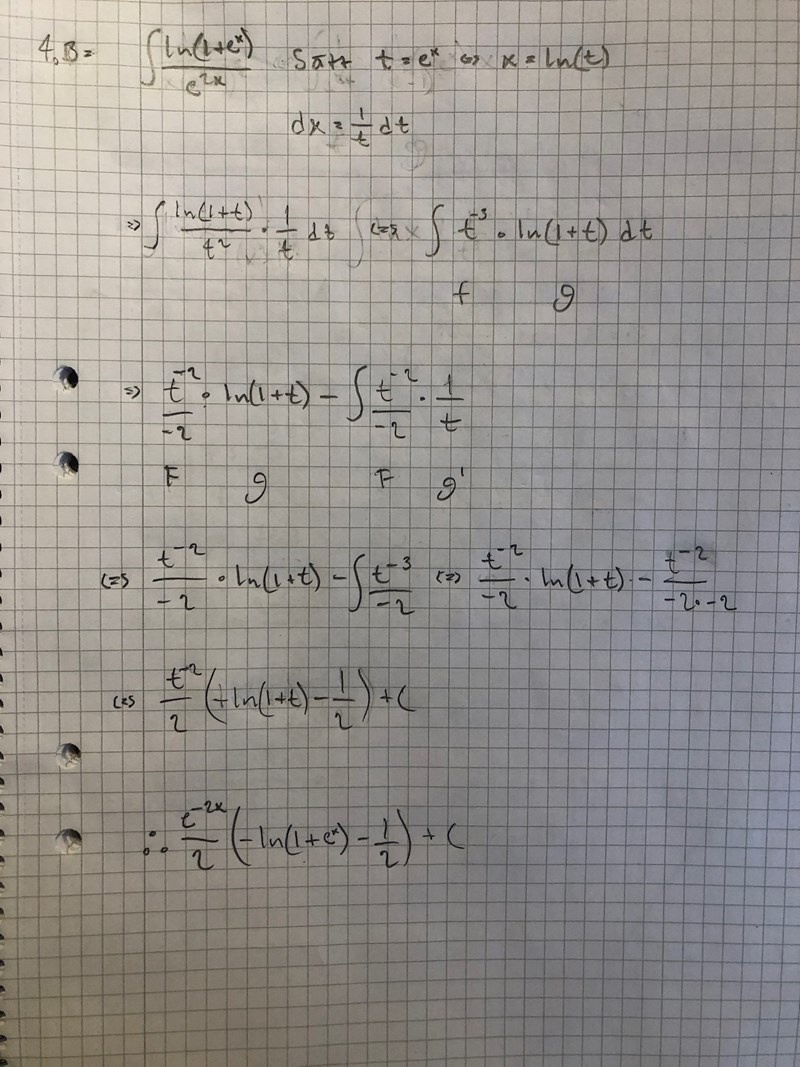 4,B = ∫ ln(1+e^x)/e^(2x) Sätt t = e^x ⇔ x = ln(t)
dx = 1/t dt
⇒ ∫ ln(1+t)/t^2 · 1/t dt ⇔ ∫ t^-3 · ln(1+t) dt
f g
⇒ t^-2/-2 · ln(1+t) - ∫ t^-2/-2 · 1/t
F g F g'
⇔ t^-2/-2 · ln(1+t) - ∫ t^-3/-2 ⇔ t^-2/-2 · ln(1+t) - t^-2/-2·-2
⇔ t^-2/2 (-ln(1+t) - 1/2) + C
∴ e^-2x/2 (-ln(1+e^x) - 1/2) + C